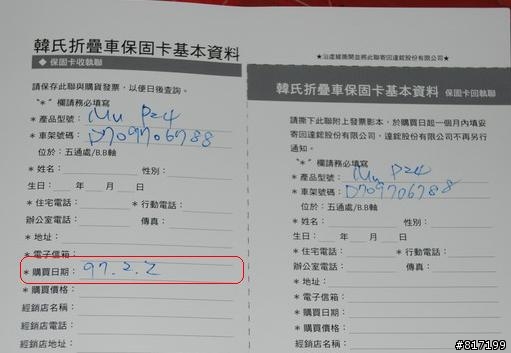 韓氏折疊車保固卡基本資料
◆ 保固卡收執聯
請保存此聯與購買發票，以便日後查詢。
“*”欄請務必填寫
* 產品型號：Mu P24
* 車架號碼：D709706788
位於：五通處/B.B軸
* 姓名： 性別：
生日： 年 月 日
* 住宅電話： * 行動電話：
辦公室電話： 傳真：
* 地址：
* 電子信箱：
* 購買日期：97.2.2
* 購買價格：
經銷店名稱：
經銷店電話：
經銷店地址：
韓氏折疊車保固卡基本資料 保固卡回執聯
請撕下此聯附上發票影本，於購買日起一個月內填妥
寄回達錠股份有限公司，達錠股份有限公司不再另行
通知。
“*”欄請務必填寫
* 產品型號：Mu P24
* 車架號碼：D709706788
位於：五通處/B.B軸
* 姓名： 性別：
生日： 年 月 日
* 住宅電話： * 行動電話：
辦公室電話： 傳真：
* 地址：
* 電子信箱：
* 購買日期：
* 購買價格：
經銷店名稱：
#817199